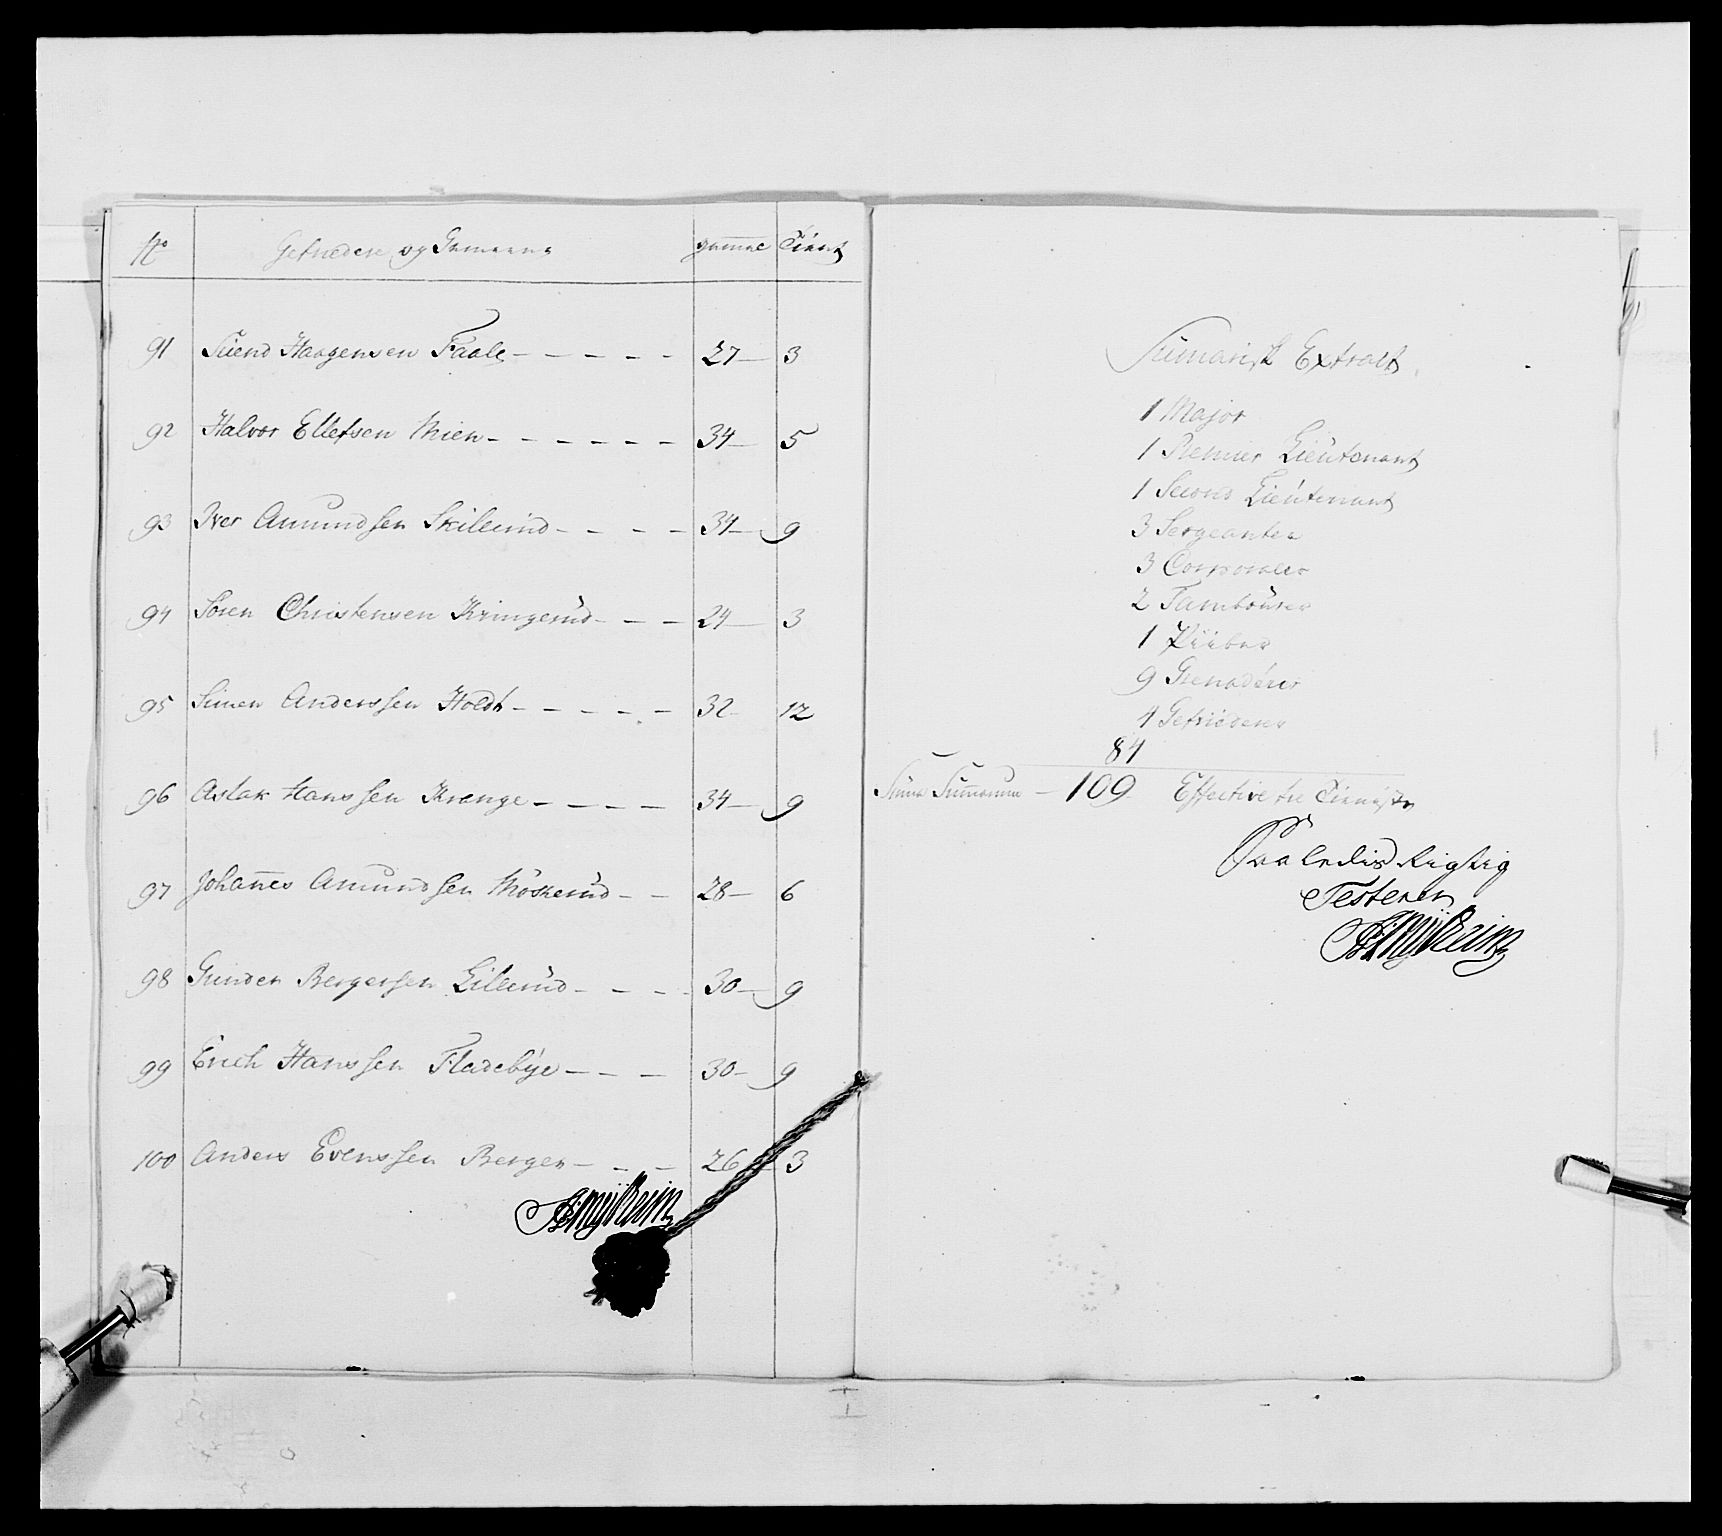 No Gefriedere og Gemeene gammel Tient
91 Siiend Haagensen Faale - - - - - 27 3
92 Halvor Ellefsen Mien - - - - - - 34 5
93 Iver Amundsen Skillerud - - - - 34 9
94 Søren Christensen Kringerud - - - 24 3
95 Simen Anderssen Holdt - - - - - 32 12
96 Aslak Hanssen Krange - - - - 34 9
97 Johannes Amundsen Møskerud - - 28 6
98 Gunder Bergersen Lillerud - - - - 30 9
99 Erich Hanssen Fladebÿe - - - 30 9
100 Anders Evenssen Berger - - - 26 3
Sumarisk Extract
1 Major
1 Premier Lieutenant
1 Second Lieutenant
3 Sergeanter
3 Corporaler
2 Tambourer
1 Piiber
9 Grenaderer
4 Gefriedere
84
Suma Summarum - 109 Effective til Tieniste
Saaledis Rigtig
Testerer